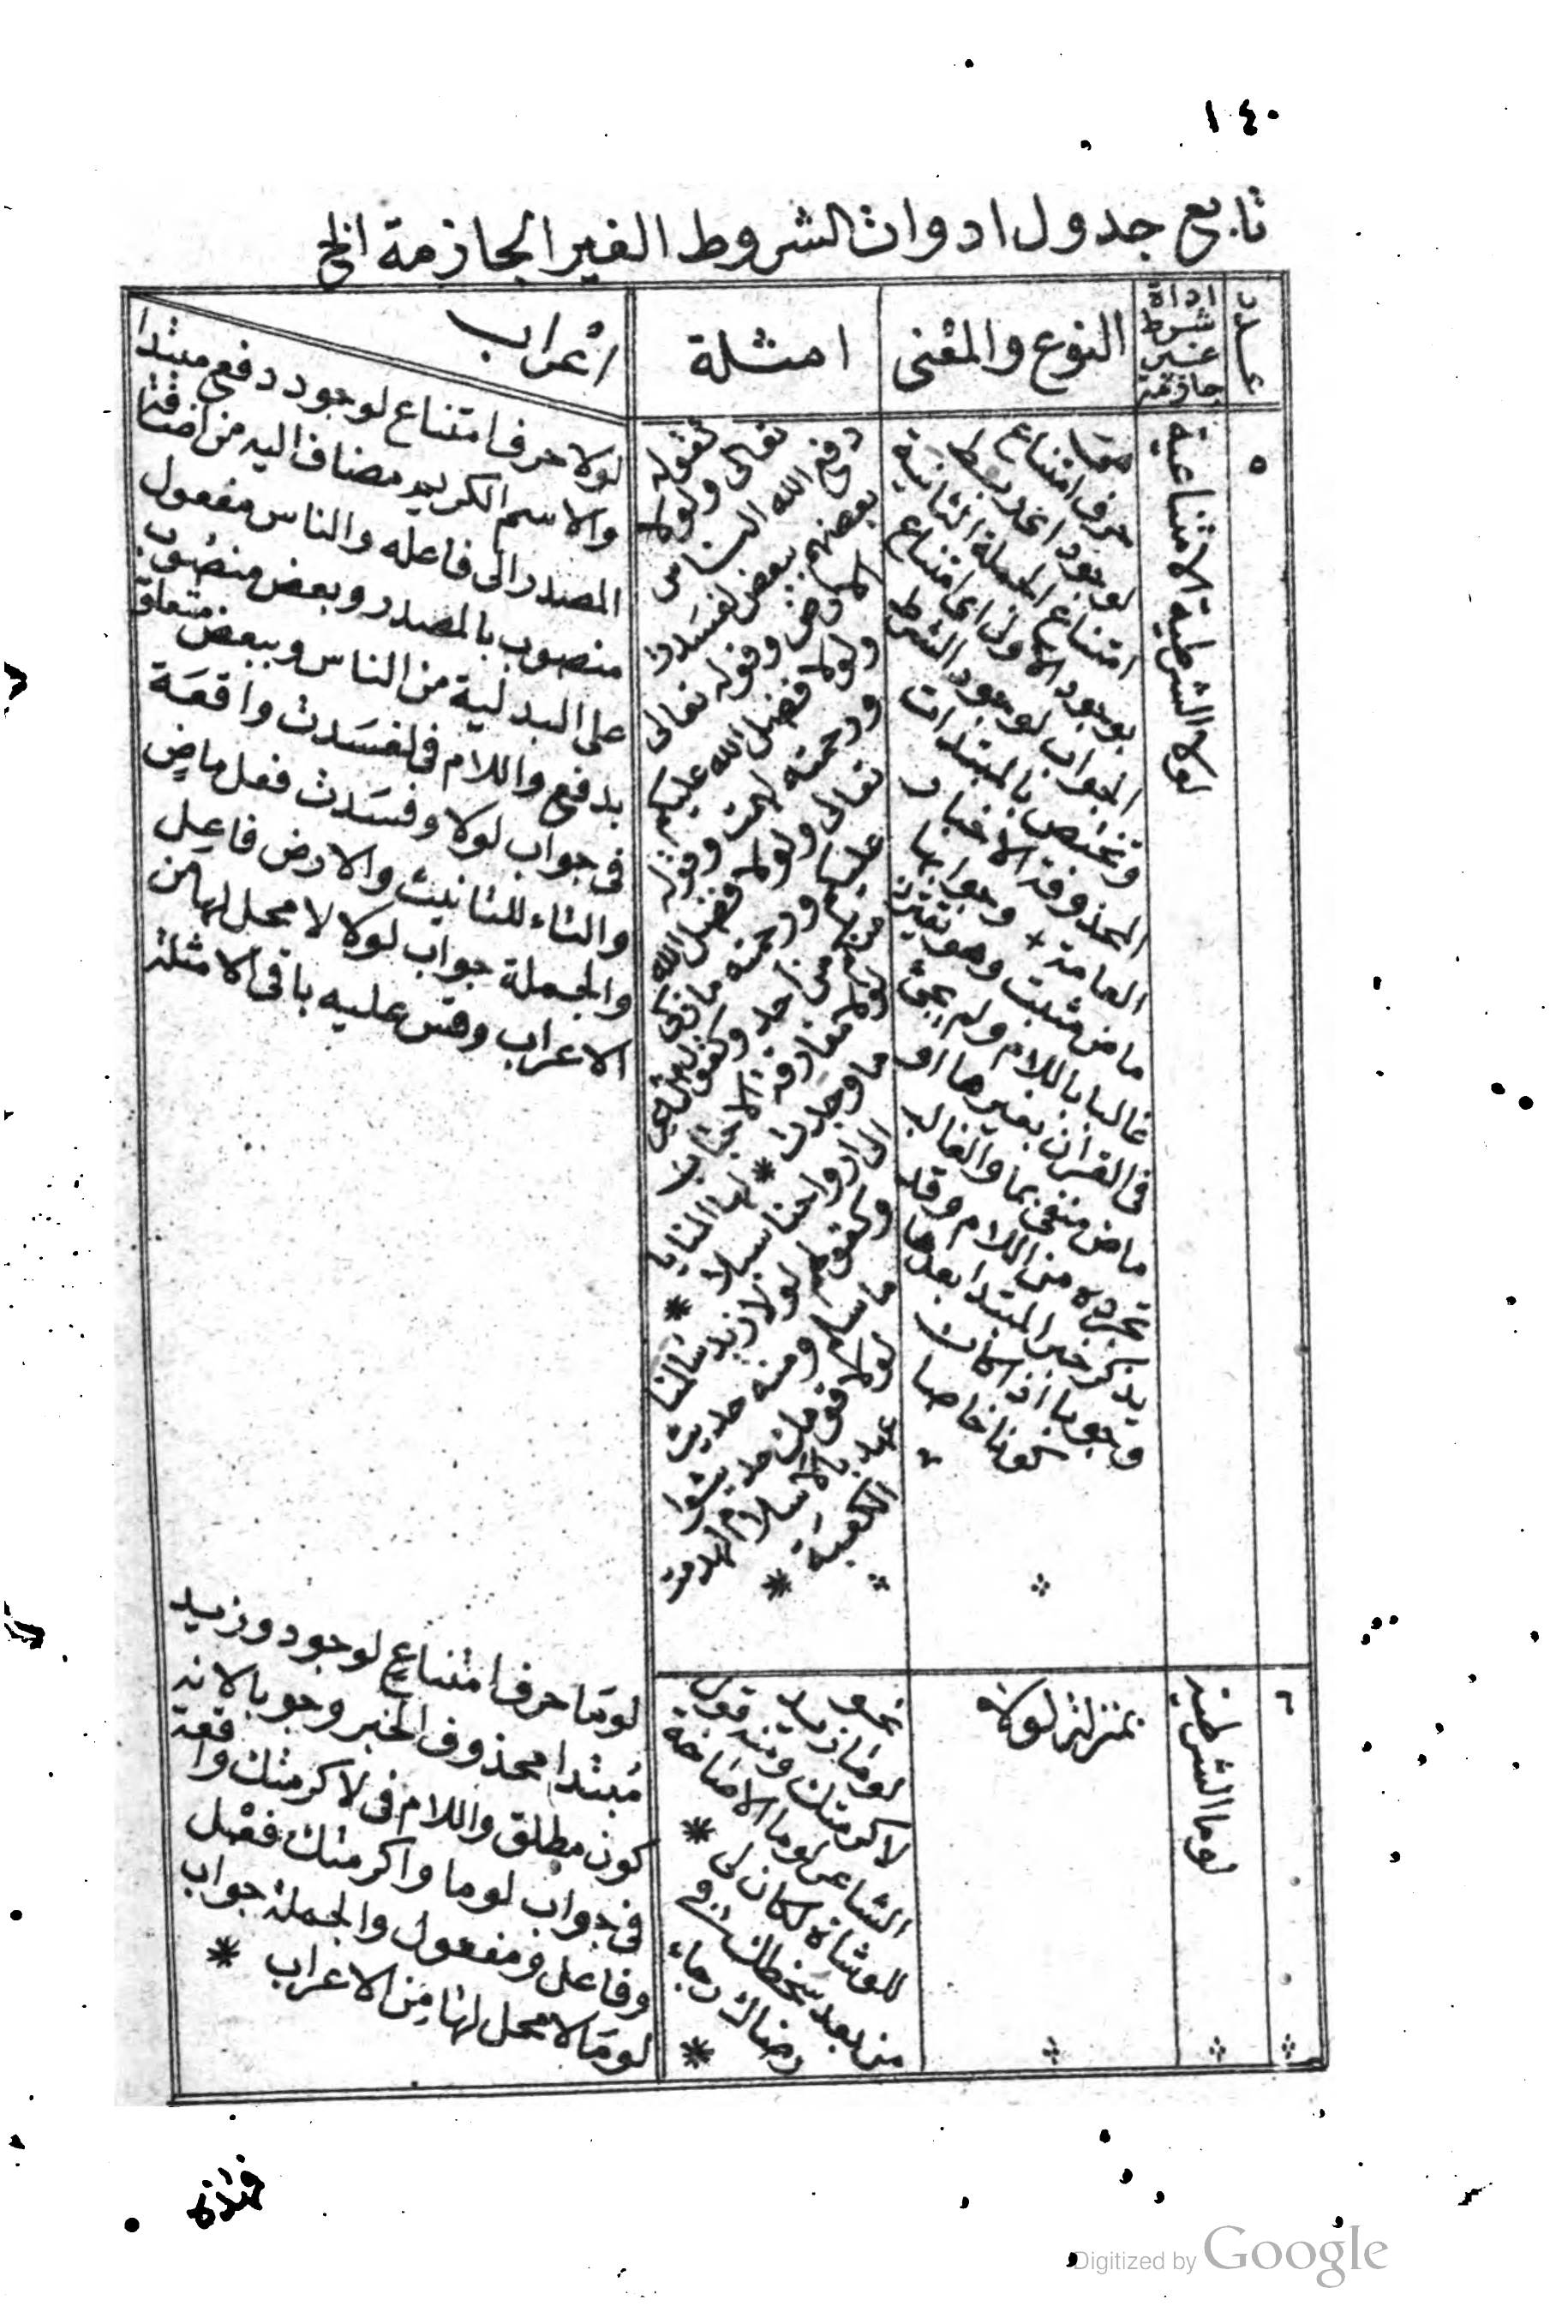 ١٤٠
تابع جدول ادوات الشروط الغير الجازمة الخ
عدد
اداة
شرط
غير
جازمة
النوع والمعنى
امثلة
اعراب
٥
لولا الشرطية الامتناعية
حرف امتناع
لوجود اى تربط
امتناع الجملة الثانية
بوجود الاولى اى امتناع
الجواب لوجود الشرط
وتختص بالمبتدات
المحذوفة الاخبار
العامة + وجوابها
ماض مثبت وهو يقترن
غالبا باللام ولم يجئ
فى القرآن بغيرها او
ماض منفى بما والغالب
تجرده من اللام وقد
يذكر خبر المبتدا بعدها
وجوبا اذا كان
كونا خاصا
كقوله
تعالى ولولا
دفع الله الناس
بعضهم ببعض لفسدت
الارض وقوله تعالى
ولولا فضل الله عليكم
ورحمته لهمت وقوله
تعالى ولولا فضل الله
عليكم ورحمته ما زكى
منكم من احد وكقول الشاعر
لولا مفارقة الاحباب
ما وجدت * لها المنايا
الى ارواحنا سبلا *
وكقولهم لولا زيد سالمنا
ما سلم ومنه حديث
لولا قومك حديثوا
عهد بالاسلام لهدمت
الكعبة *
لولا حرف امتناع لوجود دفع مبتدا
والاسم الكريم مضاف اليه من اضافة
المصدر الى فاعله والناس مفعول
منصوب بالمصدر وبعض منصوب
على البدلية من الناس وببعض متعلق
بدفع واللام فى لفسَدت واقعَة
فى جواب لولا وفسَدت فعل ماض
والتاء للتانيث والارض فاعِل
والجملة جواب لولا لا محل لها من
الاعراب وقس عليه باقى الامثلة
٦
لوما الشرطية
بمنزلة لولا
نحو
لومَا زيد
لاكرمتك ومنه قول
الشاعر لوما الاصَاخة
للوشاة لكان لى *
من بعد سخطك فى
رضاك رجاء *
لومَا حرف امتناع لوجود وزيد
مُبتدا محذوف الخبر وجوبا لانه
كون مطلق واللام فى لاكرمتك واقعة
فى جواب لوما واكرمتك فعْل
وفاعل ومفعول والجملة جواب
لومَا لا محل لها مِن الاعراب *
Digitized by Google